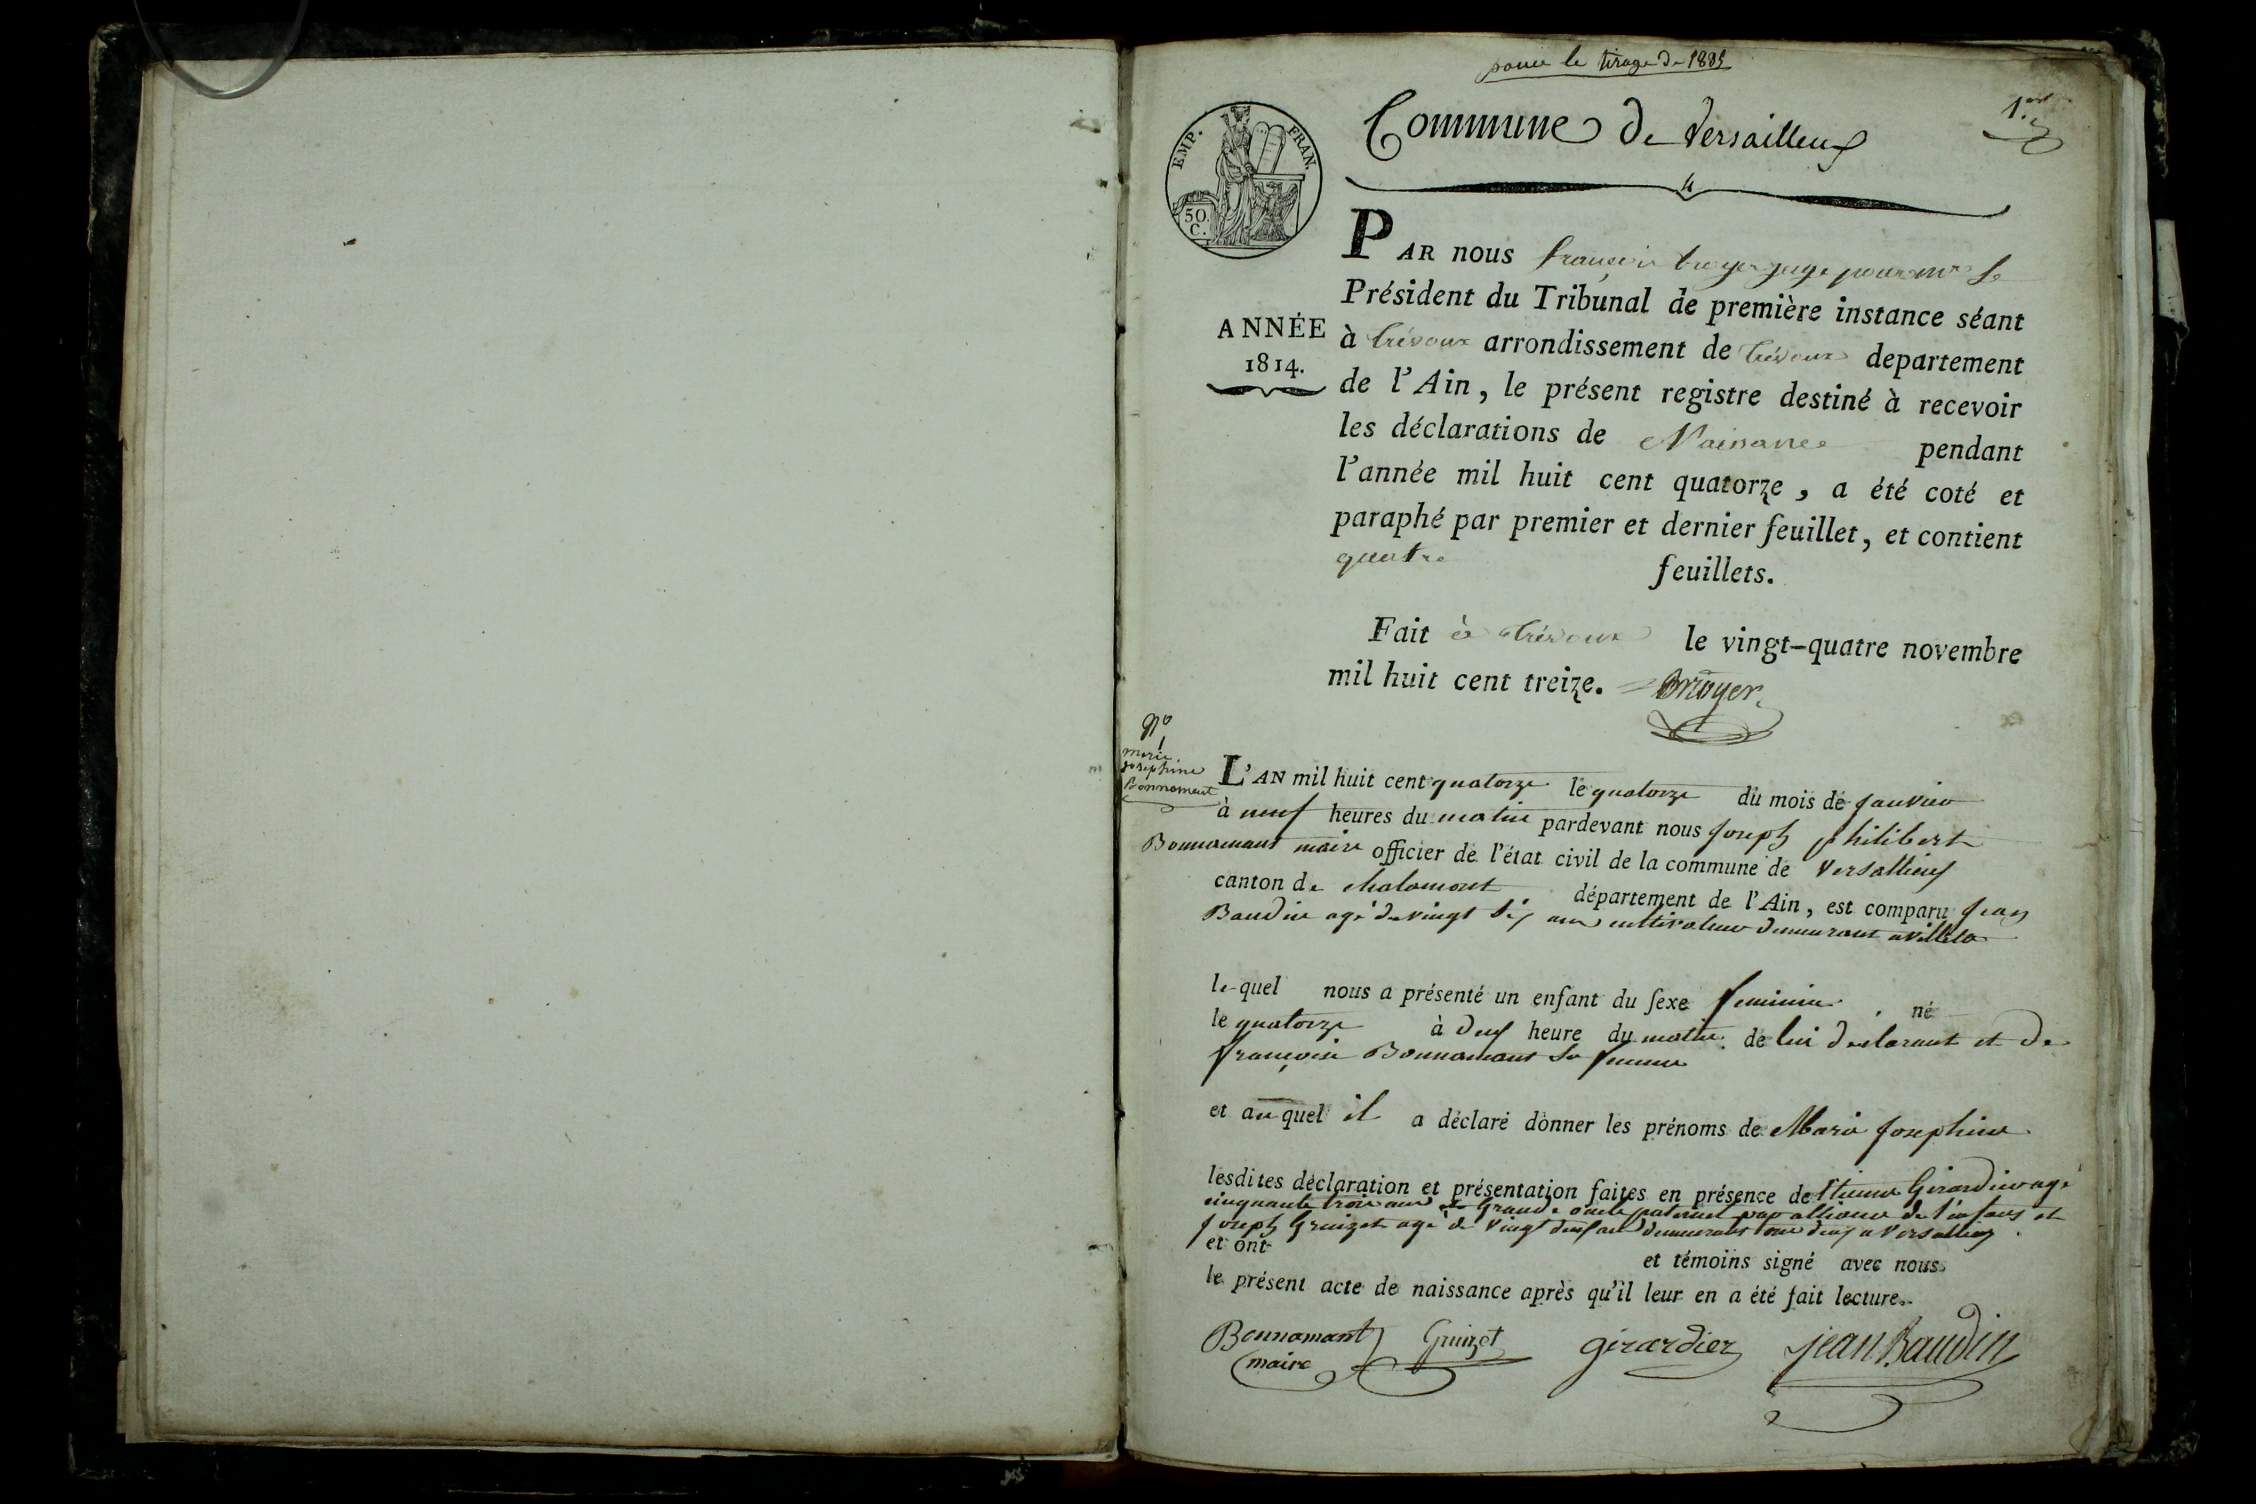 pour le tirage de 1835
1.er
EMP. FRAN.
50. C.
Commune De Versailleux
4
PAR nous françois bruyer juge pour mr le
Président du Tribunal de première instance séant
ANNÉE
1814.
à trévoux arrondissement de trévoux departement
de l'Ain, le présent registre destiné à recevoir
les déclarations de Naissance pendant
l'année mil huit cent quatorze, a été coté et
paraphé par premier et dernier feuillet, et contient
quatre feuillets.
Fait à trévoux le vingt-quatre novembre
mil huit cent treize. = Bruyer
No
1
marie
josephine
Bonnamant
L'AN mil huit cent quatorze le quatorze du mois de janvier
à neuf heures du matin pardevant nous joseph philibert
Bonnamant maire officier de l'état civil de la commune de Versallieux
canton de chalamont département de l'Ain, est comparu jean
Baudin agé de vingt six ans cultivateur demeurant a
le quel nous a présenté un enfant du sexe feminin né
le quatorze à deux heure du matin de lui declarant et de
françoise Bonnamant sa femme
et au quel il a déclaré donner les prénoms de Marie josephine
lesdites déclaration et présentation faites en présence de Etienne Girardier agé
cinquante trois ans Grand oncle paternel par alliance de l'enfant et
joseph Gruizet agé de vingt deux ans demeurants tous deux a Versallieux
et ont et témoins signé avec nous
le présent acte de naissance après qu'il leur en a été fait lecture.
Bonnamant Gruizet girardier jean Baudin
maire